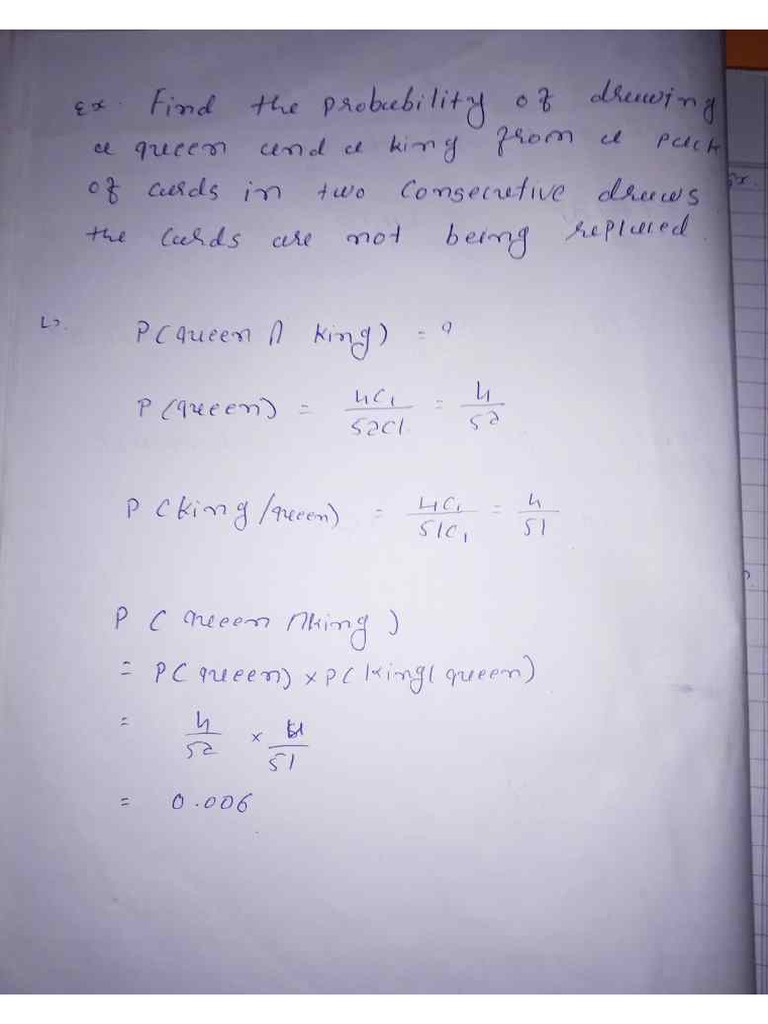 Ex. Find the probability of drawing
a queen and a king from a pack
of cards in two consecutive draws
the cards are not being replaced.
P(queen ∩ king) = ?
P(queen) = 4C1/52C1 = 4/52
P(king/queen) = 4C1/51C1 = 4/51
P(queen ∩ king)
= P(queen) × P(king/queen)
= 4/52 × 4/51
= 0.006